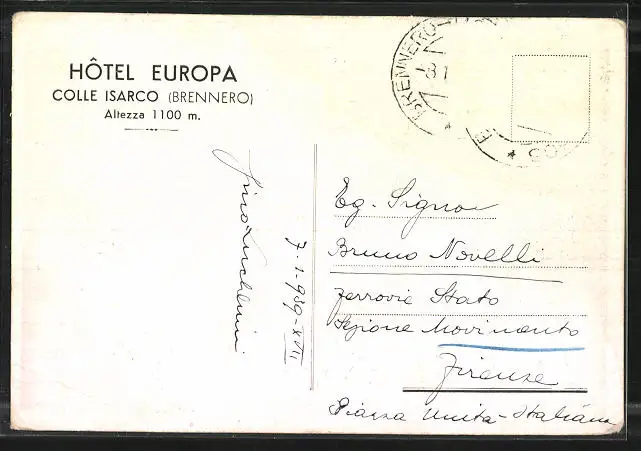 HÔTEL EUROPA
COLLE ISARCO (BRENNERO)
Altezza 1100 m.
BRENNERO
7-1-939-XVII
Eg. Signor
Bruno Novelli
Ferrovie Stato
Sezione Movimento
Firenze
Piazza Unità-Italiana